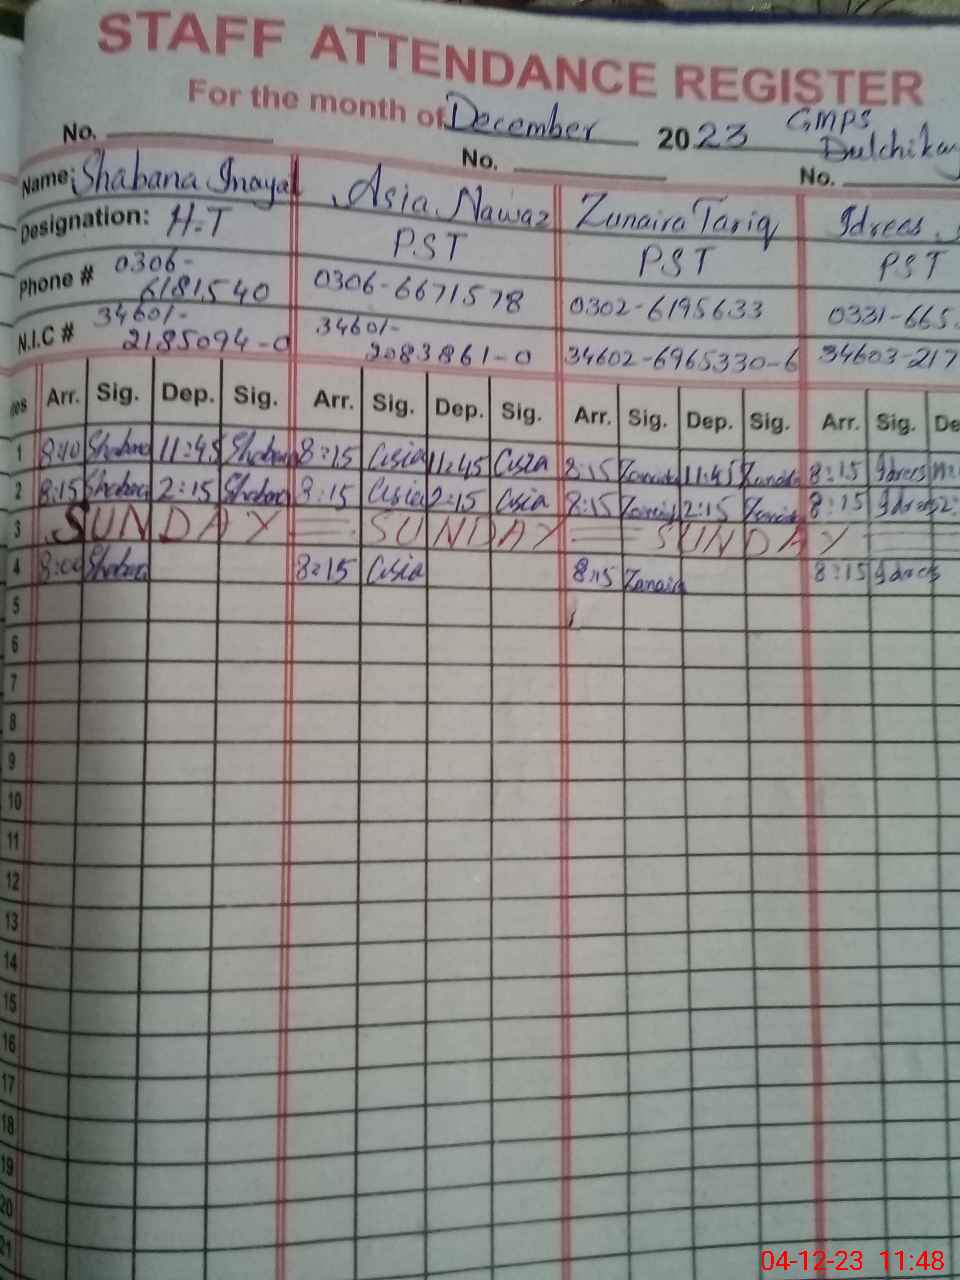 STAFF ATTENDANCE REGISTER
For the month of December 2023 GMPS
No. No. Dulchikay No.
Name: Shabana Inayat Asia Nawaz Zunaira Tariq Idrees
Designation: H.T PST PST PST
Phone # 0306-6181540 0306-6671578 0302-6195633 0331-665
N.I.C # 34601-2185094-0 34601-2083861-0 34602-6965330-6 34603-217
Arr. Sig. Dep. Sig. Arr. Sig. Dep. Sig. Arr. Sig. Dep. Sig. Arr. Sig. De
1 8:10 Shabana 11:45 Shabana 8:15 Asia 11:45 Asia 8:15 Zunaira 11:45 Zunaira 8:15 Idrees
2 8:15 Shabana 2:15 Shabana 8:15 Asia 2:15 Asia 8:15 Zunaira 2:15 Zunaira 8:15 Idrees 2:
3 SUNDAY = SUNDAY = SUNDAY
4 8:00 Shabana 8:15 Asia 8:15 Zunaira 8:15 Idrees
5
6
7
8
9
10
11
12
13
14
15
16
17
18
19
20
21
04-12-23 11:48